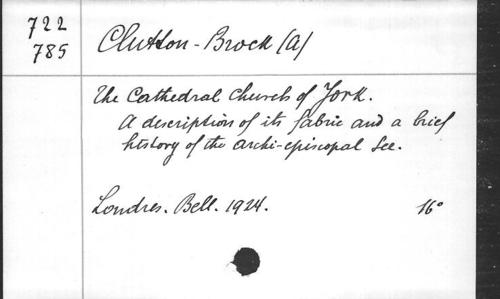 722
785
Clutton-Brock (A)
The Cathedral Church of York.
A description of its fabric and a brief
history of the archi-episcopal See.
Londres. Bell. 1924. 16°